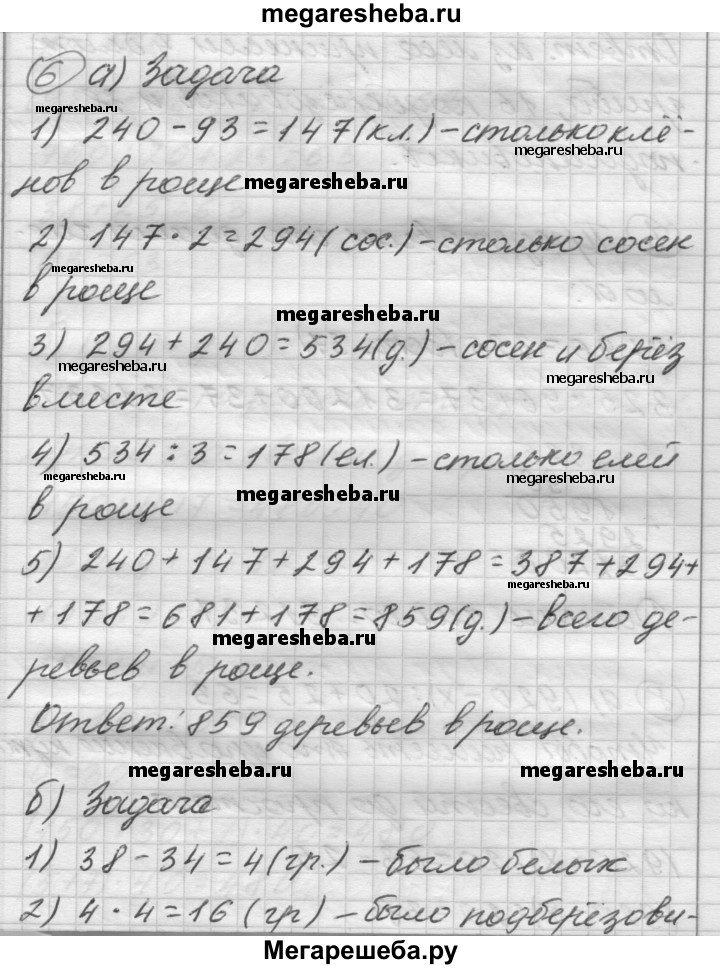 megaresheba.ru
6 а) Задача
megaresheba.ru
1) 240 - 93 = 147 (кл.) - столько клё-
megaresheba.ru
нов в роще
megaresheba.ru
2) 147 · 2 = 294 (сос.) - столько сосен
megaresheba.ru
megaresheba.ru
в роще
megaresheba.ru
3) 294 + 240 = 534 (д.) - сосен и берёз
megaresheba.ru
megaresheba.ru
вместе
4) 534 : 3 = 178 (ел.) - столько елей
megaresheba.ru
megaresheba.ru
megaresheba.ru
в роще
5) 240 + 147 + 294 + 178 = 387 + 294 +
megaresheba.ru
+ 178 = 681 + 178 = 859 (д.) - всего де-
megaresheba.ru
ревьев в роще.
Ответ: 859 деревьев в роще.
megaresheba.ru
megaresheba.ru
б) Задача
1) 38 - 34 = 4 (гр.) - было белых
2) 4 · 4 = 16 (гр) - было подберёзови-
Мегарешеба.ру